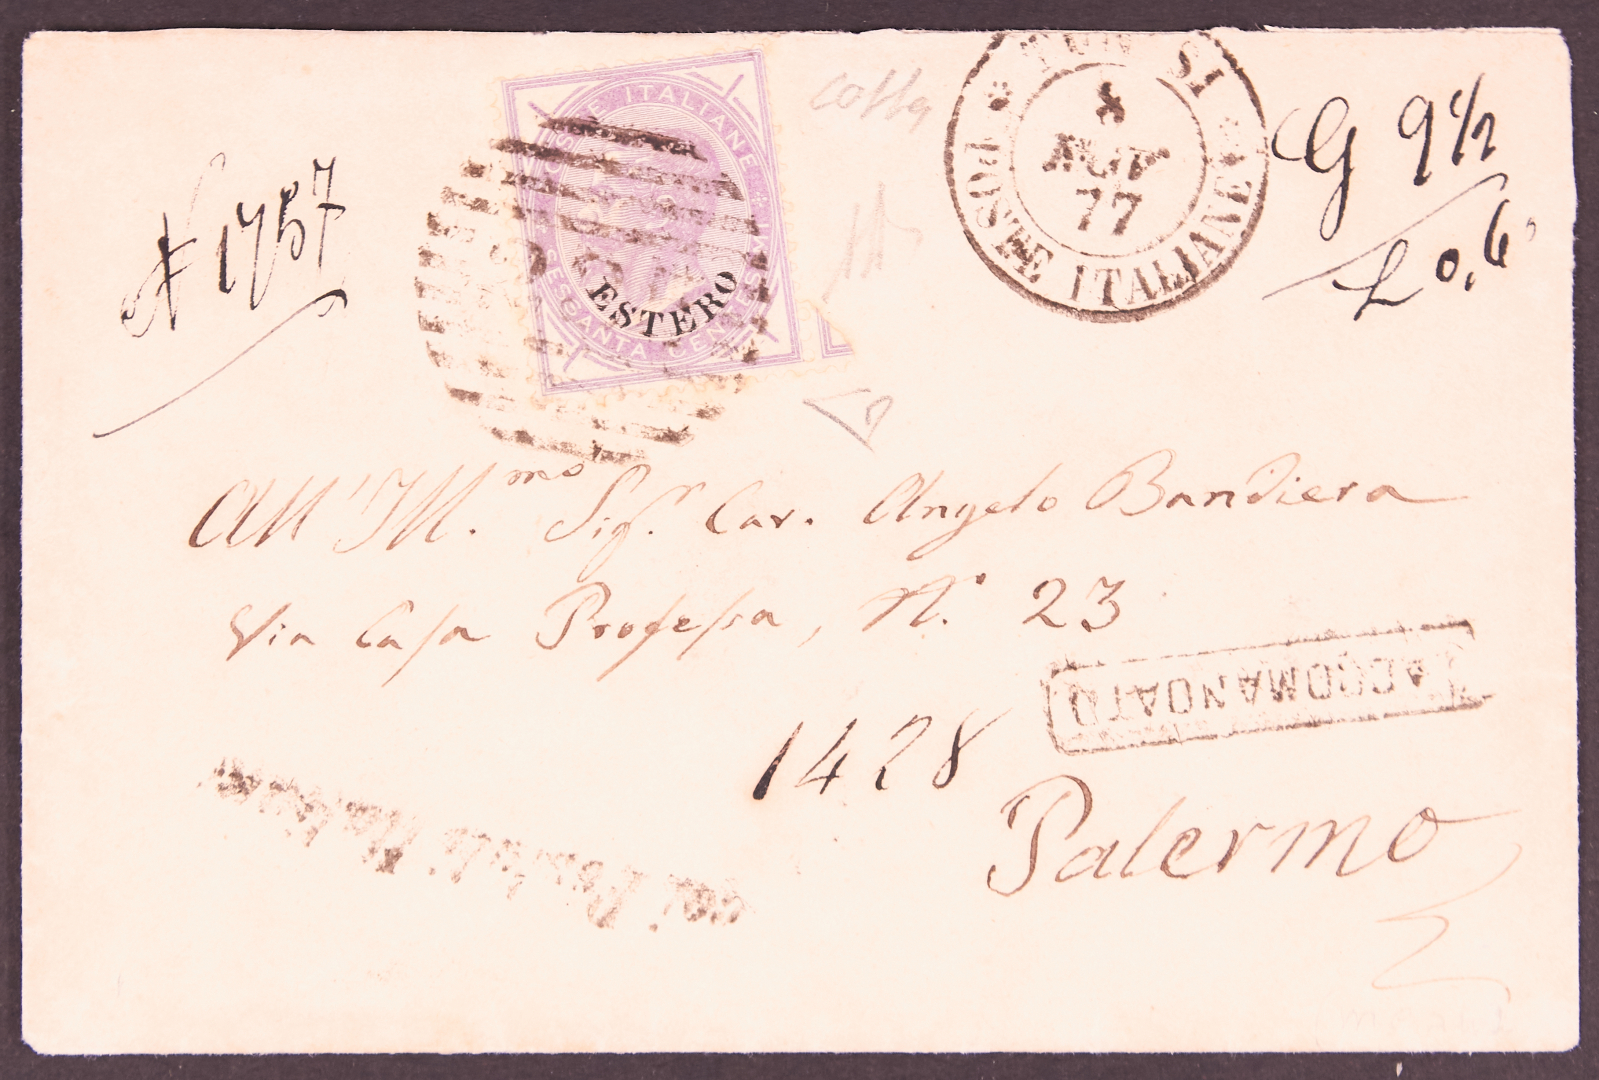 N 1757
POSTE ITALIANE
ESTERO
SESSANTA CENTESIMI
TUNISI
8
NOV
77
POSTE ITALIANE
G 9 1/2
L 0,6
All' Ill.mo Sig.r Cav. Angelo Bandiera
Via Casa Professa, N.° 23
RACCOMANDATO
1428
Palermo
Postali Italiani